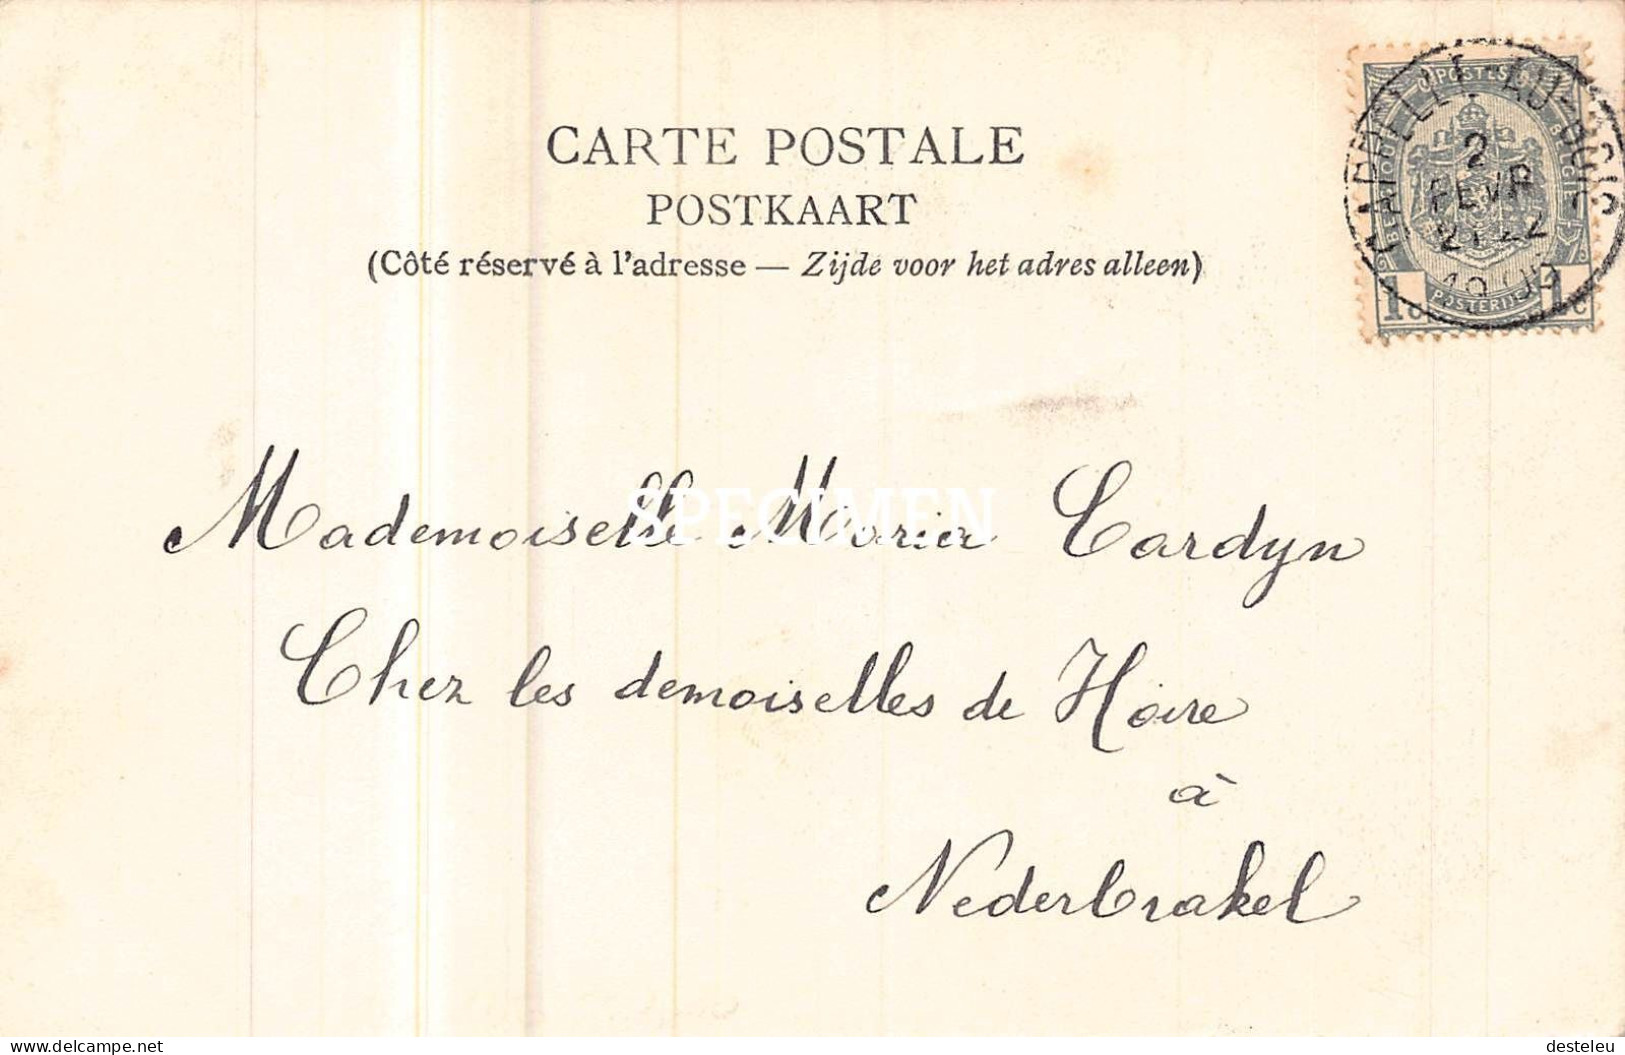 CARTE POSTALE
POSTKAART
(Côté réservé à l'adresse — Zijde voor het adres alleen)
CAPPELLE-AU-BOIS
2
FEVR
21-22
POSTES
BELGIQUE
BELGIË
1c
POSTERIJEN
1c
Mademoiselle Maria Cardyn
SPECIMEN
Chez les demoiselles de Hoire
à
Nederbrakel
www.delcampe.net
desteleu